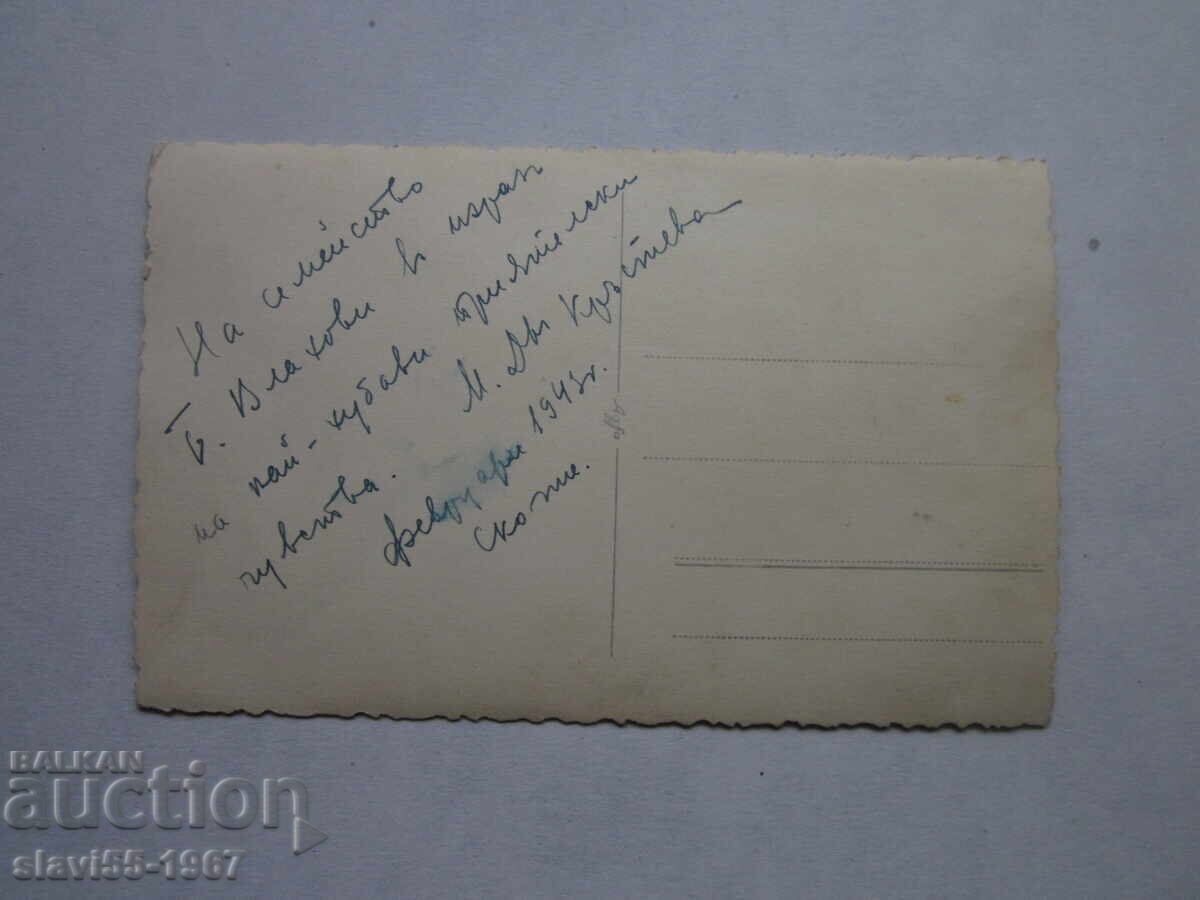 На семейство
Б. Влахови в израз
на най-хубави приятелски
чувства. М. Дъг Кръстева
февруари 1943 г.
Скопие.
BALKAN
auction
slavi55-1967